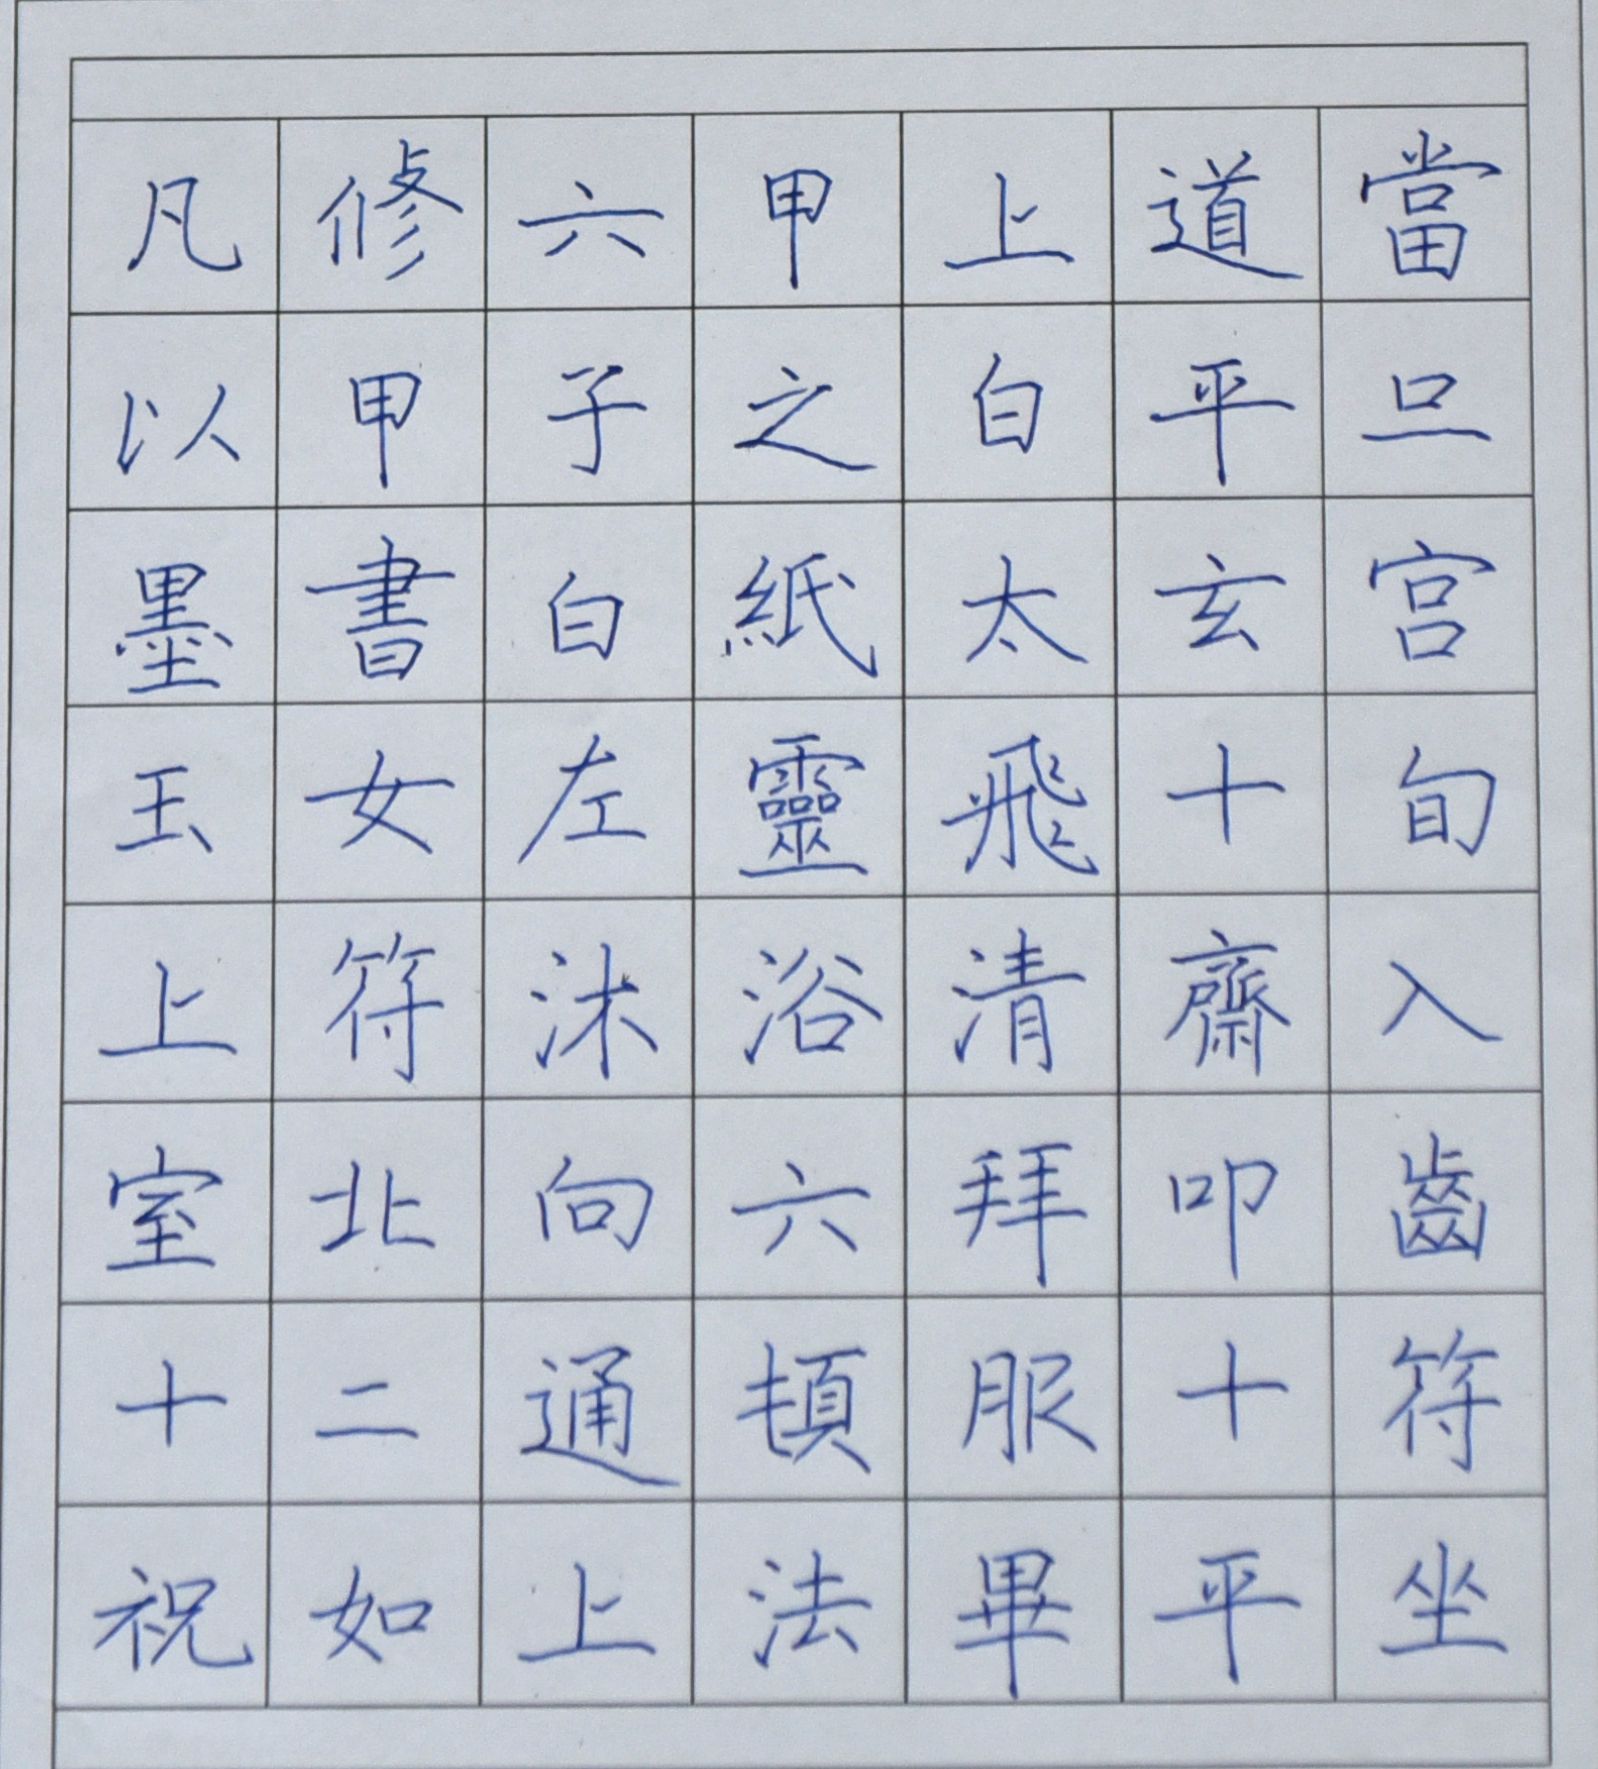 凡修六甲上道當
以甲子之白平旦
墨書白紙太玄宫
玉女左靈飛十旬
上符沐浴清齋入
室北向六拜叩齒
十二通頓服十符
祝如上法畢平坐